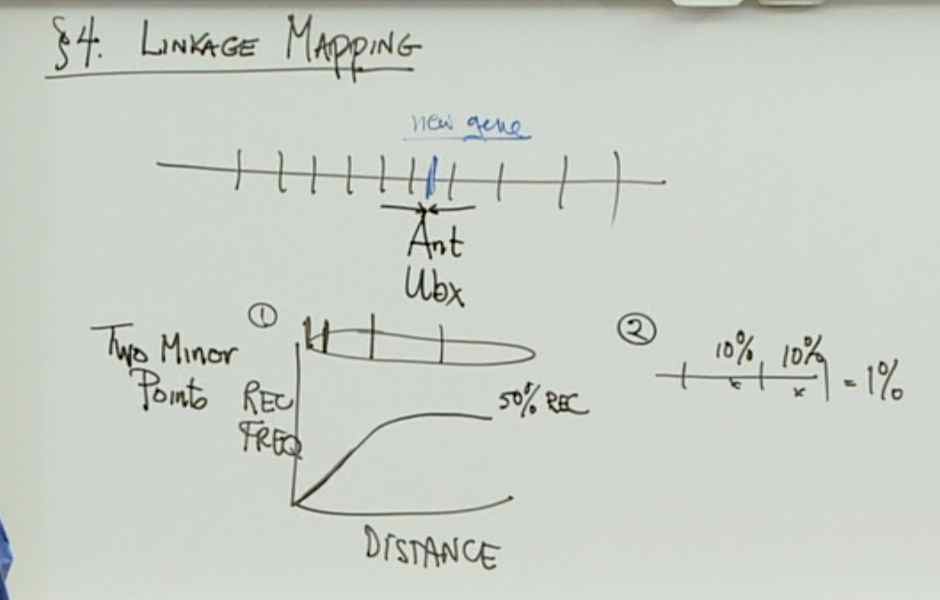 §4. LINKAGE MAPPING
new gene
Ant
Ubx
TWO MINOR
POINTS
①
REC
FREQ
50% REC
DISTANCE
②
10% 10%
= 1%